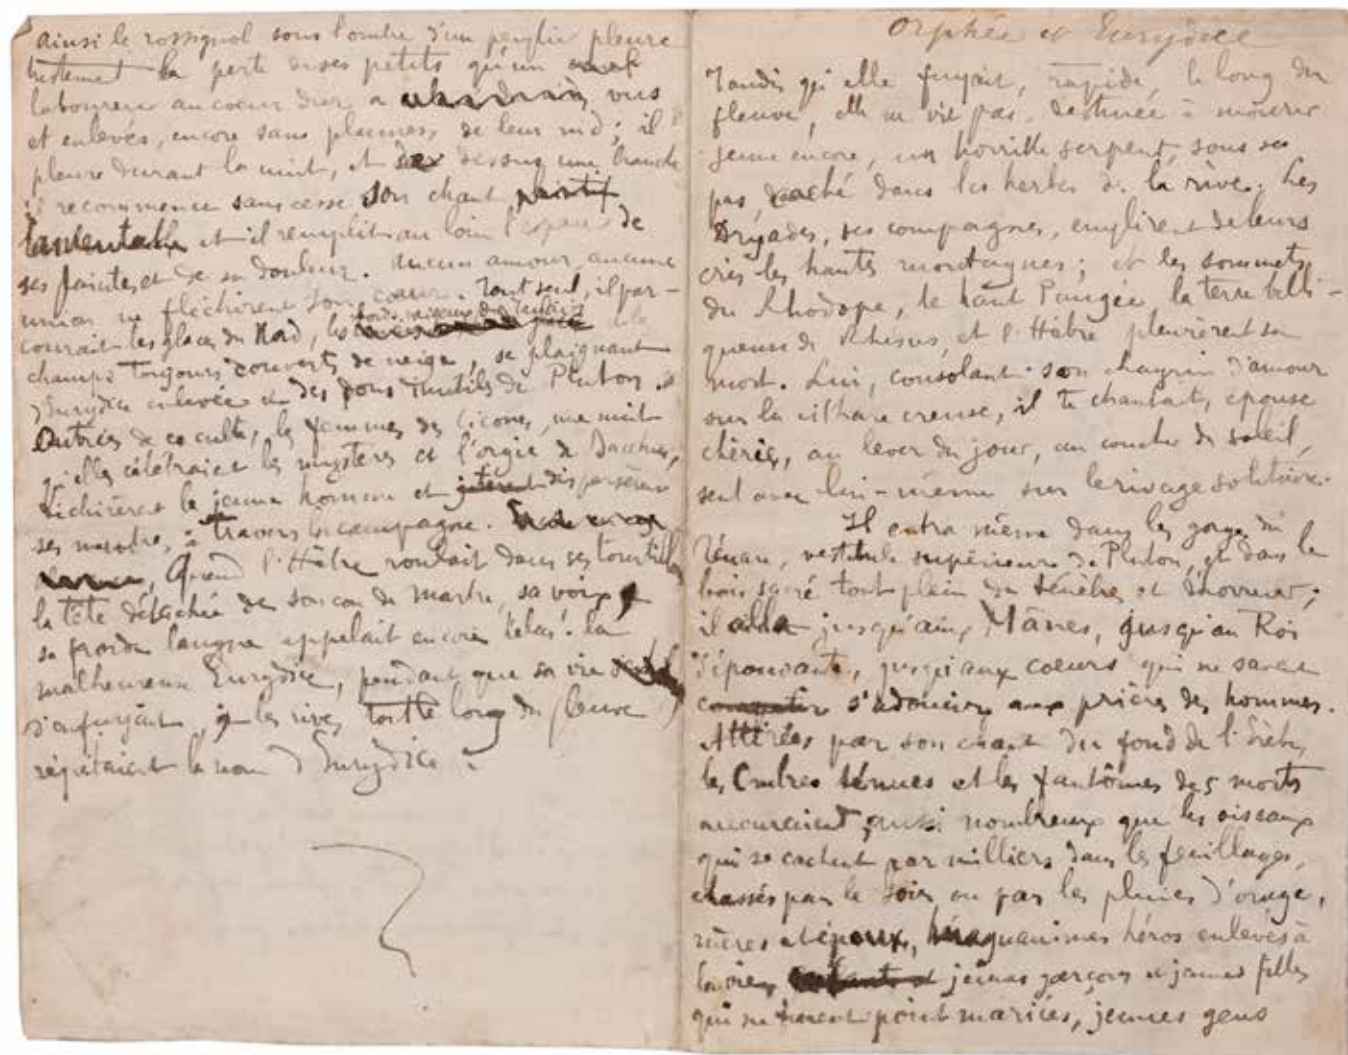 ainsi le rossignol sous l'ombre d'un peuplier pleure
tristement la perte de ses petits qu'un
laboureur au coeur dur a vus
et enlevés, encore sans plumes, de leur nid ; il
pleure durant la nuit, et dessus une branche
il recommence sans cesse son chant plaintif
lamentable et il remplit au loin l'espace de
ses plaintes et de sa douleur. Aucun amour, aucune
union ne fléchirent son coeur. Tout seul, il par-
courait les glaces du Nord, les
champs toujours couverts de neige, se plaignant
d'Eurydice enlevée et des dons inutiles de Pluton.
Outrées de ce culte, les femmes des Cicones, une nuit
qu'elles célébraient les mystères et l'orgie de Bacchus,
déchirèrent le jeune homme et jetèrent dispersèrent
ses membres, à travers la campagne.
Quand l'Hèbre roulait dans ses tourbillons
la tête détachée de son cou de marbre, sa voix
sa froide langue appelait encore hélas ! la
malheureuse Eurydice, pendant que sa vie
s'enfuyait, les rives tout le long du fleuve
répétaient le nom d'Eurydice.
Orphée et Eurydice
Tandis qu'elle fuyait, rapide, le long du
fleuve, elle ne vit pas, destinée à mourir
jeune encore, un horrible serpent, sous ses
pas, caché dans les herbes de la rive. Les
Dryades, ses compagnes, emplirent de leurs
cris les hauts montagnes ; et les sommets
du Rhodope, le haut Pangée, la terre belli-
queuse de Rhésus, et l'Hèbre pleurèrent sa
mort. Lui, consolant son chagrin d'amour
sur la cithare creuse, il te chantait, épouse
chérie, au lever du jour, au coucher du soleil,
seul avec lui-même sur le rivage solitaire.
Il entra même dans les gorges du
Ténare, vestibule supérieure de Pluton, et dans le
bois sacré tout plein de ténèbres et d'horreur ;
il alla jusqu'aux Mânes, jusqu'au Roi
d'épouvante, jusqu'aux coeurs qui ne savent
compatir s'adoucir aux prières des hommes.
Attirées par son chant du fond de l'Erèbe,
les Ombres ténues et les fantômes des morts
accouraient, aussi nombreux que les oiseaux
qui se cachent par milliers dans les feuillages,
chassés par le soir ou par les pluies d'orage,
mères et époux, magnanimes héros enlevés à
la vie, jeunes garçons et jeunes filles
qui ne furent point mariées, jeunes gens